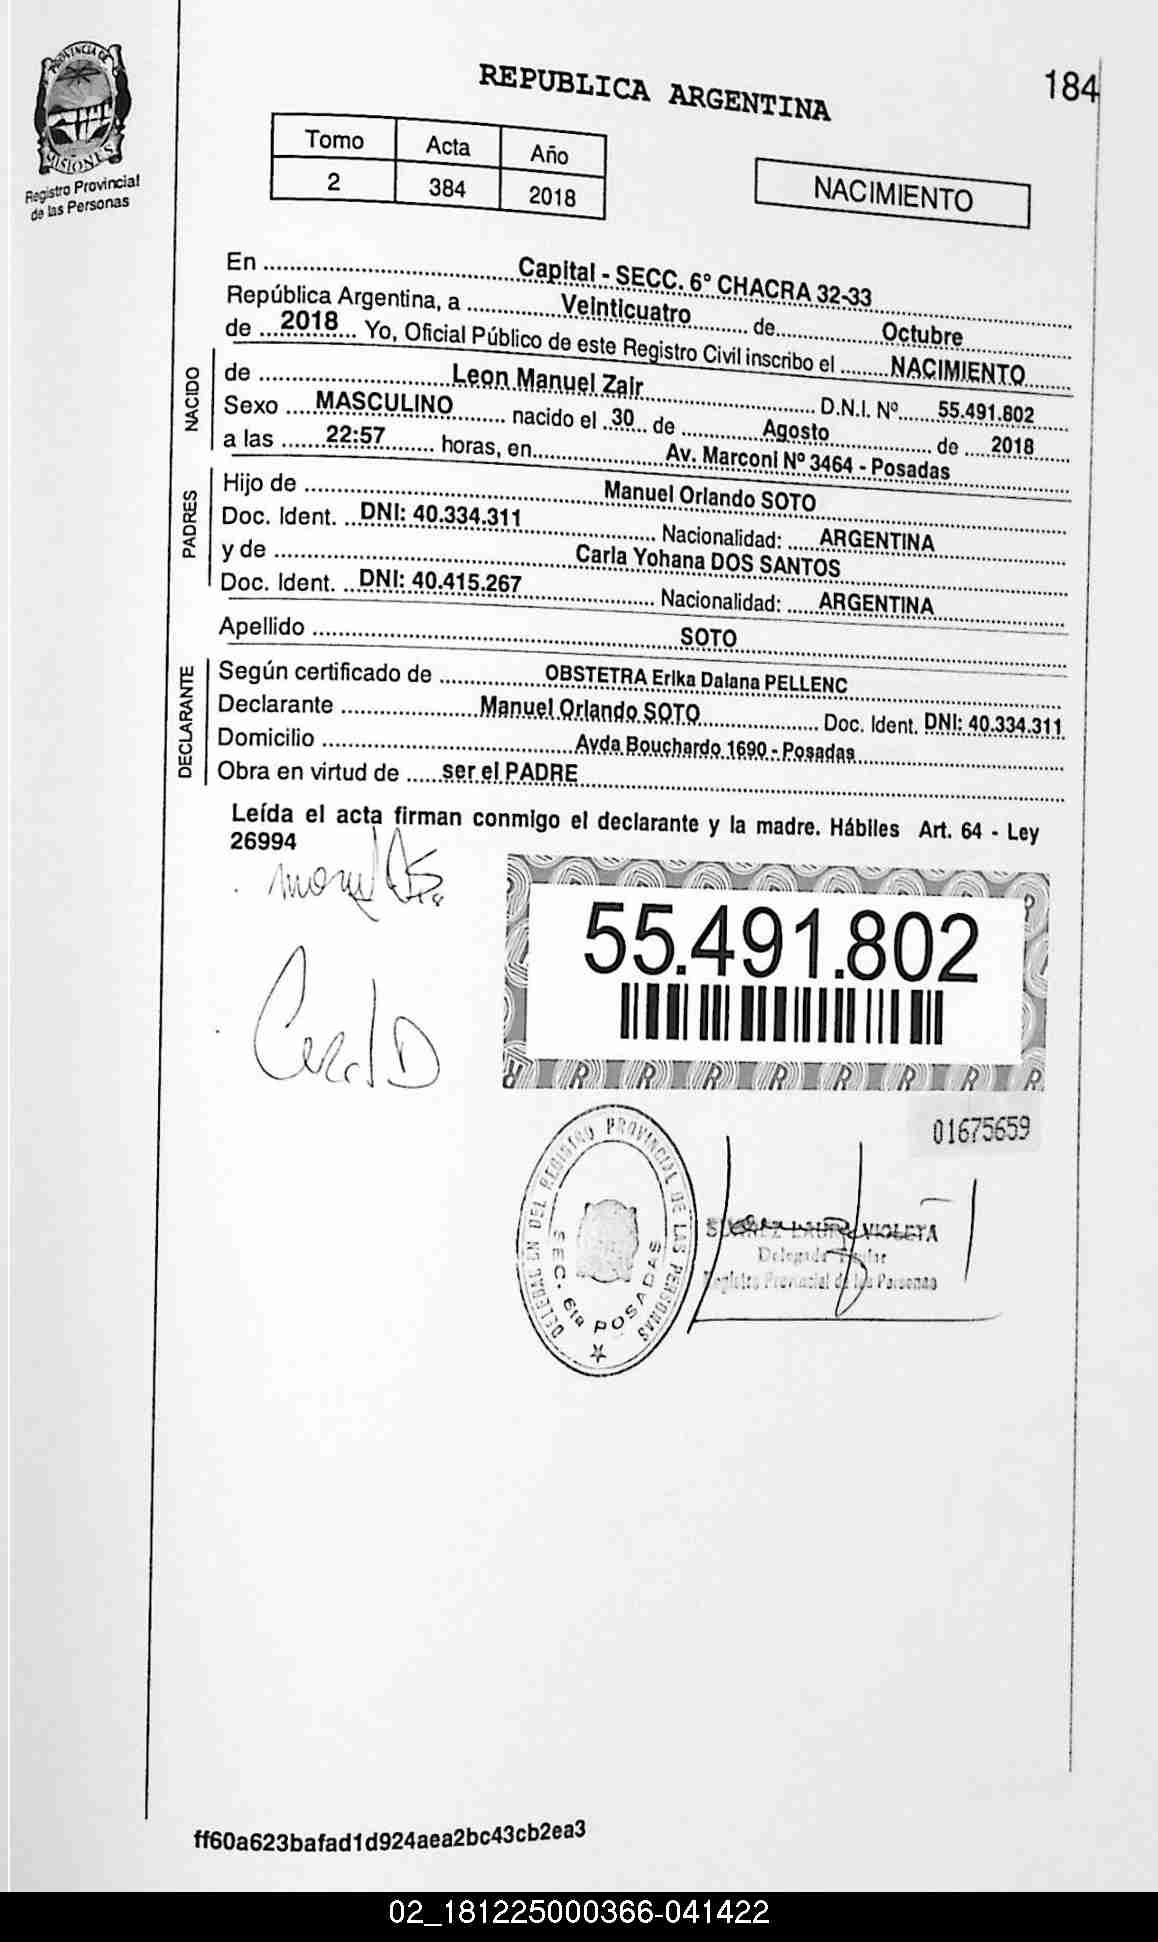 PROVINCIA DE
MISIONES
Registro Provincial
de las Personas
REPUBLICA ARGENTINA
184
Tomo Acta Año
2 384 2018
NACIMIENTO
En Capital - SECC. 6° CHACRA 32-33
República Argentina, a Veinticuatro de Octubre
de 2018 Yo, Oficial Público de este Registro Civil inscribo el NACIMIENTO
NACIDO
de Leon Manuel Zair D.N.I. Nº 55.491.802
Sexo MASCULINO nacido el 30 de Agosto de 2018
a las 22:57 horas, en Av. Marconi Nº 3464 - Posadas
PADRES
Hijo de Manuel Orlando SOTO
Doc. Ident. DNI: 40.334.311 Nacionalidad: ARGENTINA
y de Carla Yohana DOS SANTOS
Doc. Ident. DNI: 40.415.267 Nacionalidad: ARGENTINA
Apellido SOTO
DECLARANTE
Según certificado de OBSTETRA Erika Daiana PELLENC
Declarante Manuel Orlando SOTO Doc. Ident. DNI: 40.334.311
Domicilio Avda Bouchardo 1690 - Posadas
Obra en virtud de ser el PADRE
Leída el acta firman conmigo el declarante y la madre. Hábiles Art. 64 - Ley
26994
55.491.802
01675659
REGISTRO PROVINCIAL DE LAS PERSONAS
SEC. 6ta POSADAS
VIOLETA
Registro Provincial de las Personas
ff60a623bafad1d924aea2bc43cb2ea3
02_181225000366-041422